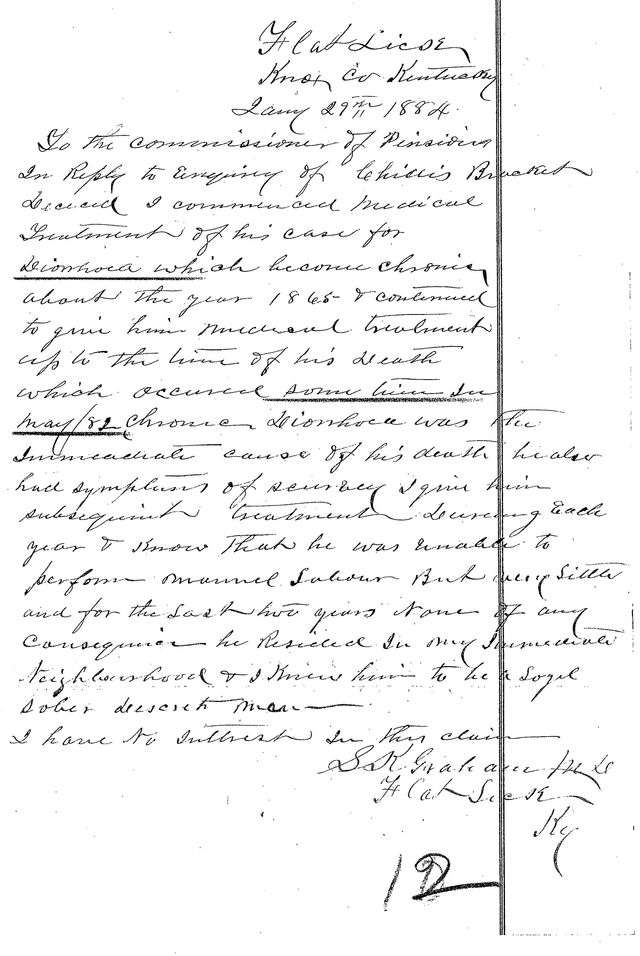 Flat Lick
Knox Co Kentucky
Jany 29th 1884
To the commissioner of Pensions
In Reply to Enquiry of Chillis Bracket
Deceied I commenced Medical
Treatment of his case for
Diorrhoea which become chronic
about the year 1865 & continued
to give him medical treatment
up to the time of his Death
which occured some time In
May/82 Chronic Diorrhoea was the
Immeadiate cause of his death he also
had symptums of scurvey I give him
subsequent treatment During Each
year & Know That he was unable to
perform manuel Labour But very Little
and for the Last two years None of any
Consequence he Resided In my Immediate
Neighbourhood & I Knew him to be a
sober descret man
I have No Intrest In this claim
S K Graham M D
Flat Lick
Ky
12